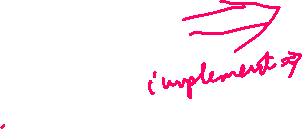 implement ⇒